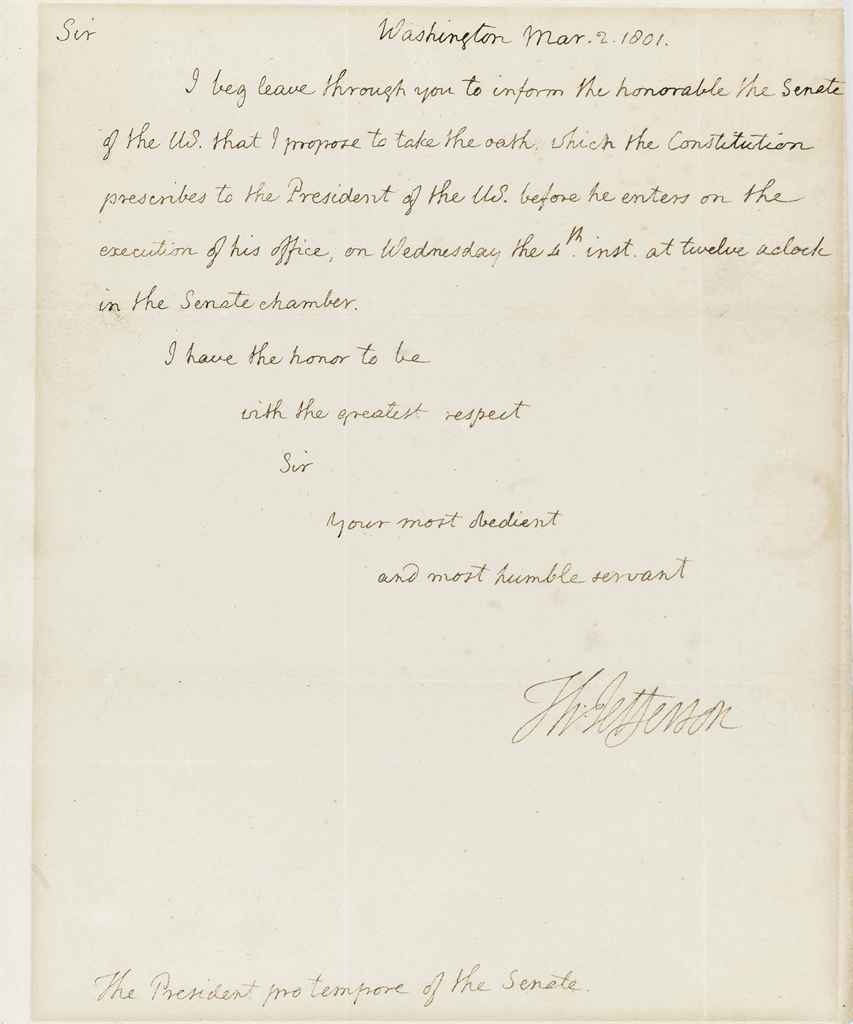 Sir Washington Mar. 2. 1801.
I beg leave through you to inform the honorable the Senate
of the US. that I propose to take the oath which the Constitution
prescribes to the President of the US. before he enters on the
execution of his office, on Wednesday the 4th. inst. at twelve aclock
in the Senate chamber.
I have the honor to be
with the greatest respect
Sir
Your most obedient
and most humble servant
Th: Jefferson
The President pro tempore of the Senate.